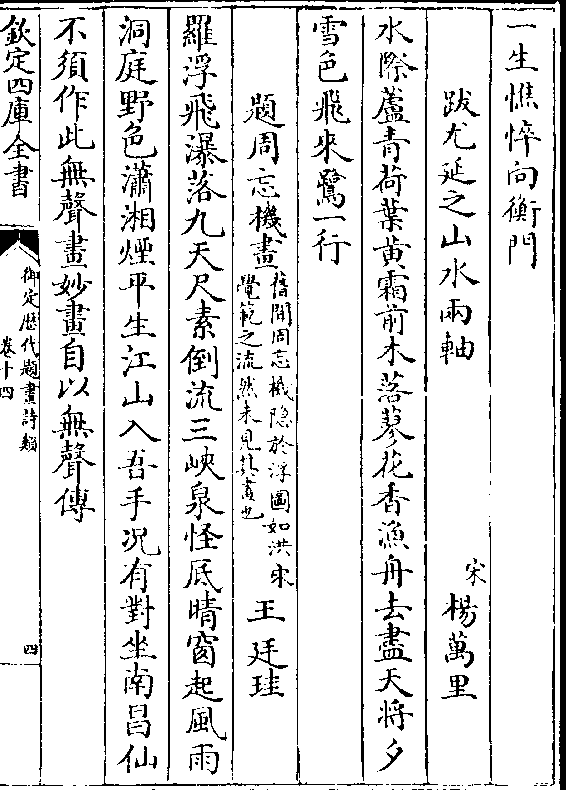 一生憔悴向衡門
跋尤延之山水兩軸
宋
楊萬里
水際蘆青荷葉黄霜前木落蓼花香漁舟去盡天將夕
雪色飛來鷺一行
題周忘機畫
舊聞周忘機隐於浮圖如洪宋
覺範之流然未見其畫也
王廷珪
羅浮飛瀑落九天尺素倒流三峽泉怪厎晴窗起風雨
洞庭野色瀟湘煙平生江山入吾手况有對坐南昌仙
不須作此無聲畫妙畫自以無聲傳
欽定四庫全書
御定歴代題畫詩類
卷十四
四